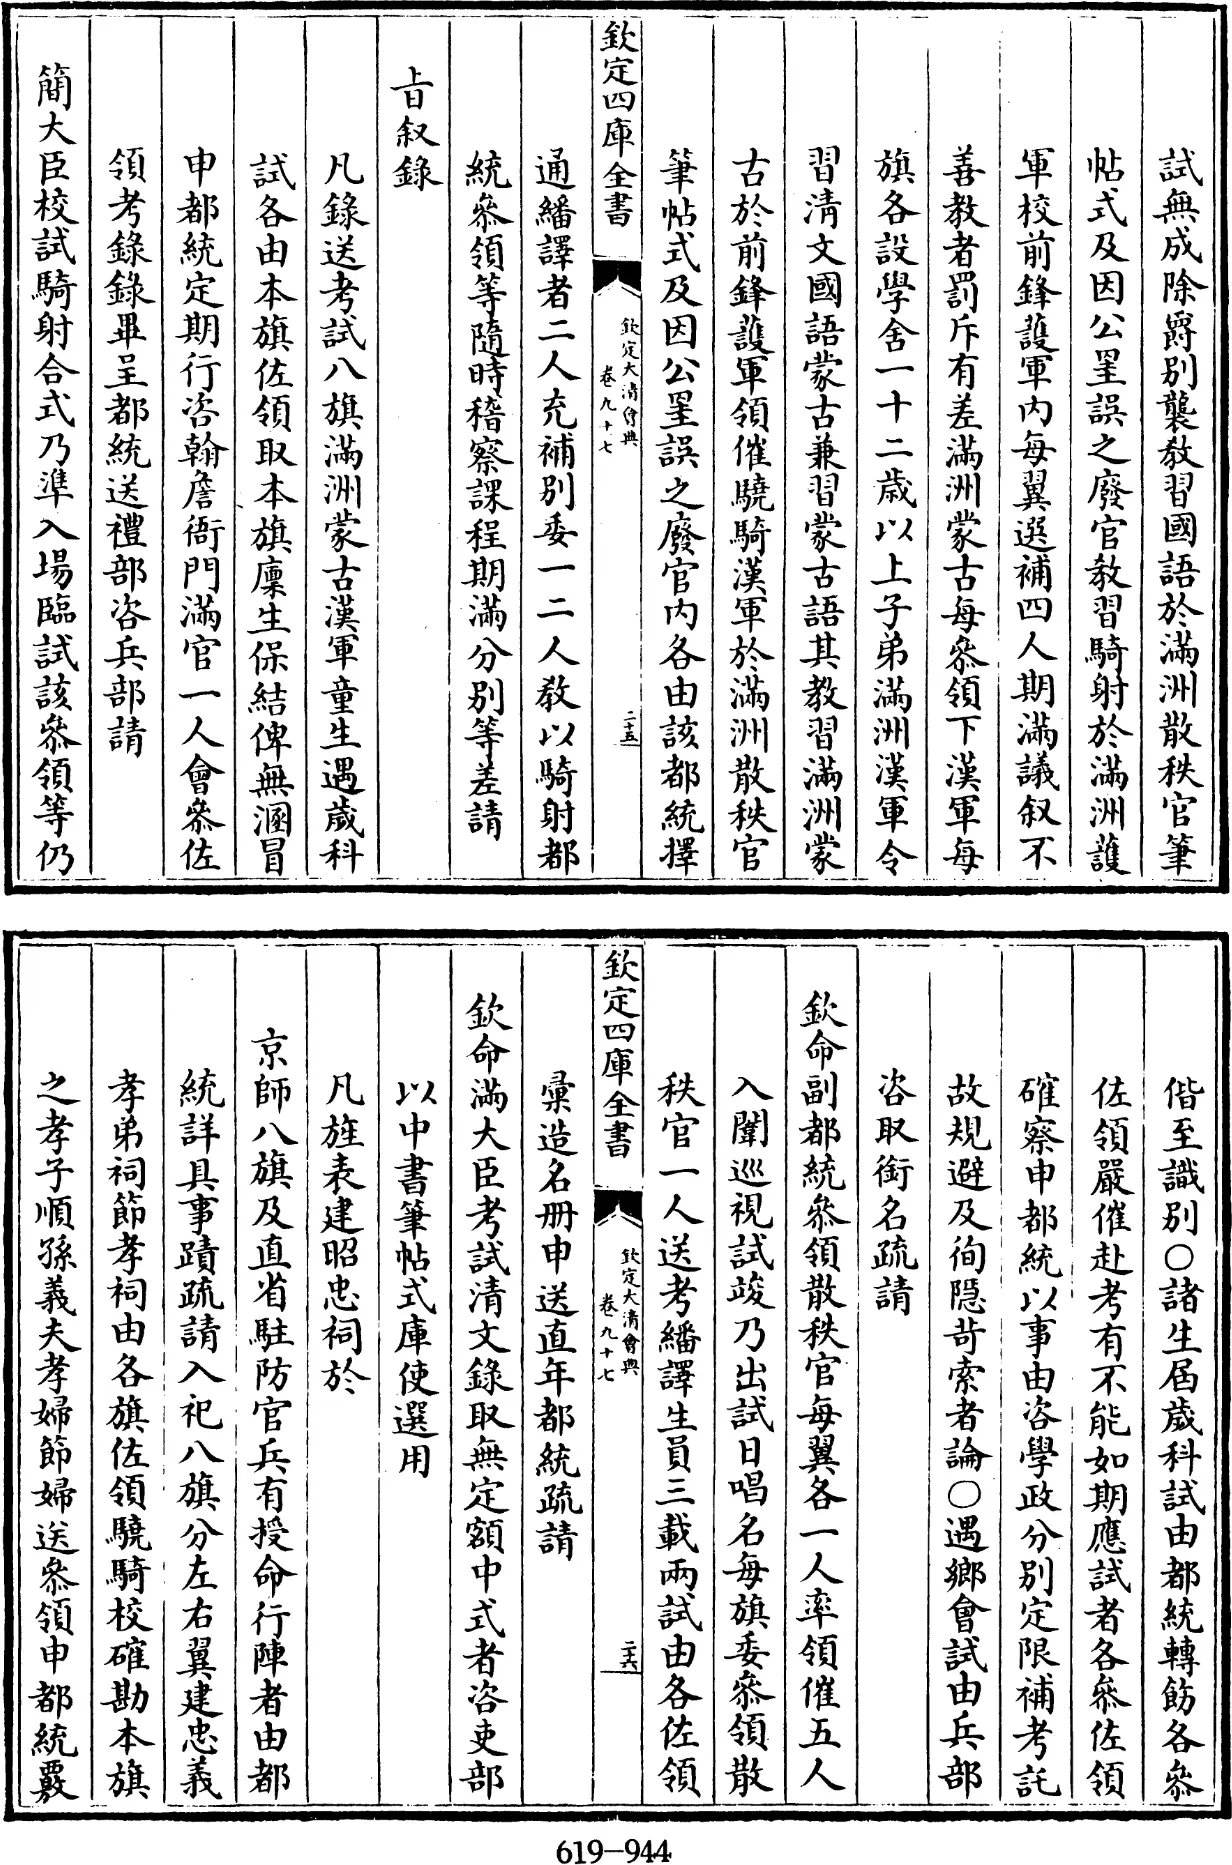 試無成除爵别襲教習國語於滿洲散秩官筆
帖式及因公罣誤之廢官教習騎射於滿洲護
軍校前鋒護軍内每翼選補四人期滿議叙不
善教者罰斥有差滿洲蒙古每叅領下漢軍每
旗各設學舍一十二歲以上子弟滿洲漢軍令
習清文國語蒙古兼習蒙古語其教習滿洲蒙
古於前鋒護軍領催驍騎漢軍於滿洲散秩官
筆帖式及因公罣誤之廢官内各由該都統擇
欽定四庫全書
欽定大清會典
卷九十七
二十五
通繙譯者二人充補别委一二人教以騎射都
統叅領等隨時稽察課程期滿分别等差請
旨叙錄
凡錄送考試八旗滿洲蒙古漢軍童生遇歲科
試各由本旗佐領取本旗廩生保結俾無溷冒
申都統定期行咨翰詹衙門滿官一人會叅佐
領考錄錄畢呈都統送禮部咨兵部請
簡大臣校試騎射合式乃準入場臨試該叅領等仍
偕至識别○諸生屆歲科試由都統轉飭各叅
佐領嚴催赴考有不能如期應試者各叅佐領
確察申都統以事由咨學政分别定限補考託
故規避及徇隱苛索者論○遇鄉會試由兵部
咨取銜名疏請
欽命副都統叅領散秩官每翼各一人率領催五人
入闈巡視試竣乃出試日唱名每旗委叅領散
秩官一人送考繙譯生員三載兩試由各佐領
欽定四庫全書
欽定大清會典
卷九十七
二十六
彚造名册申送直年都統疏請
欽命滿大臣考試清文錄取無定額中式者咨吏部
以中書筆帖式庫使選用
凡旌表建昭忠祠於
京師八旗及直省駐防官兵有授命行陣者由都
統詳具事蹟疏請入祀八旗分左右翼建忠義
孝弟祠節孝祠由各旗佐領驍騎校確勘本旗
之孝子順孫義夫孝婦節婦送叅領申都統覈
619-944